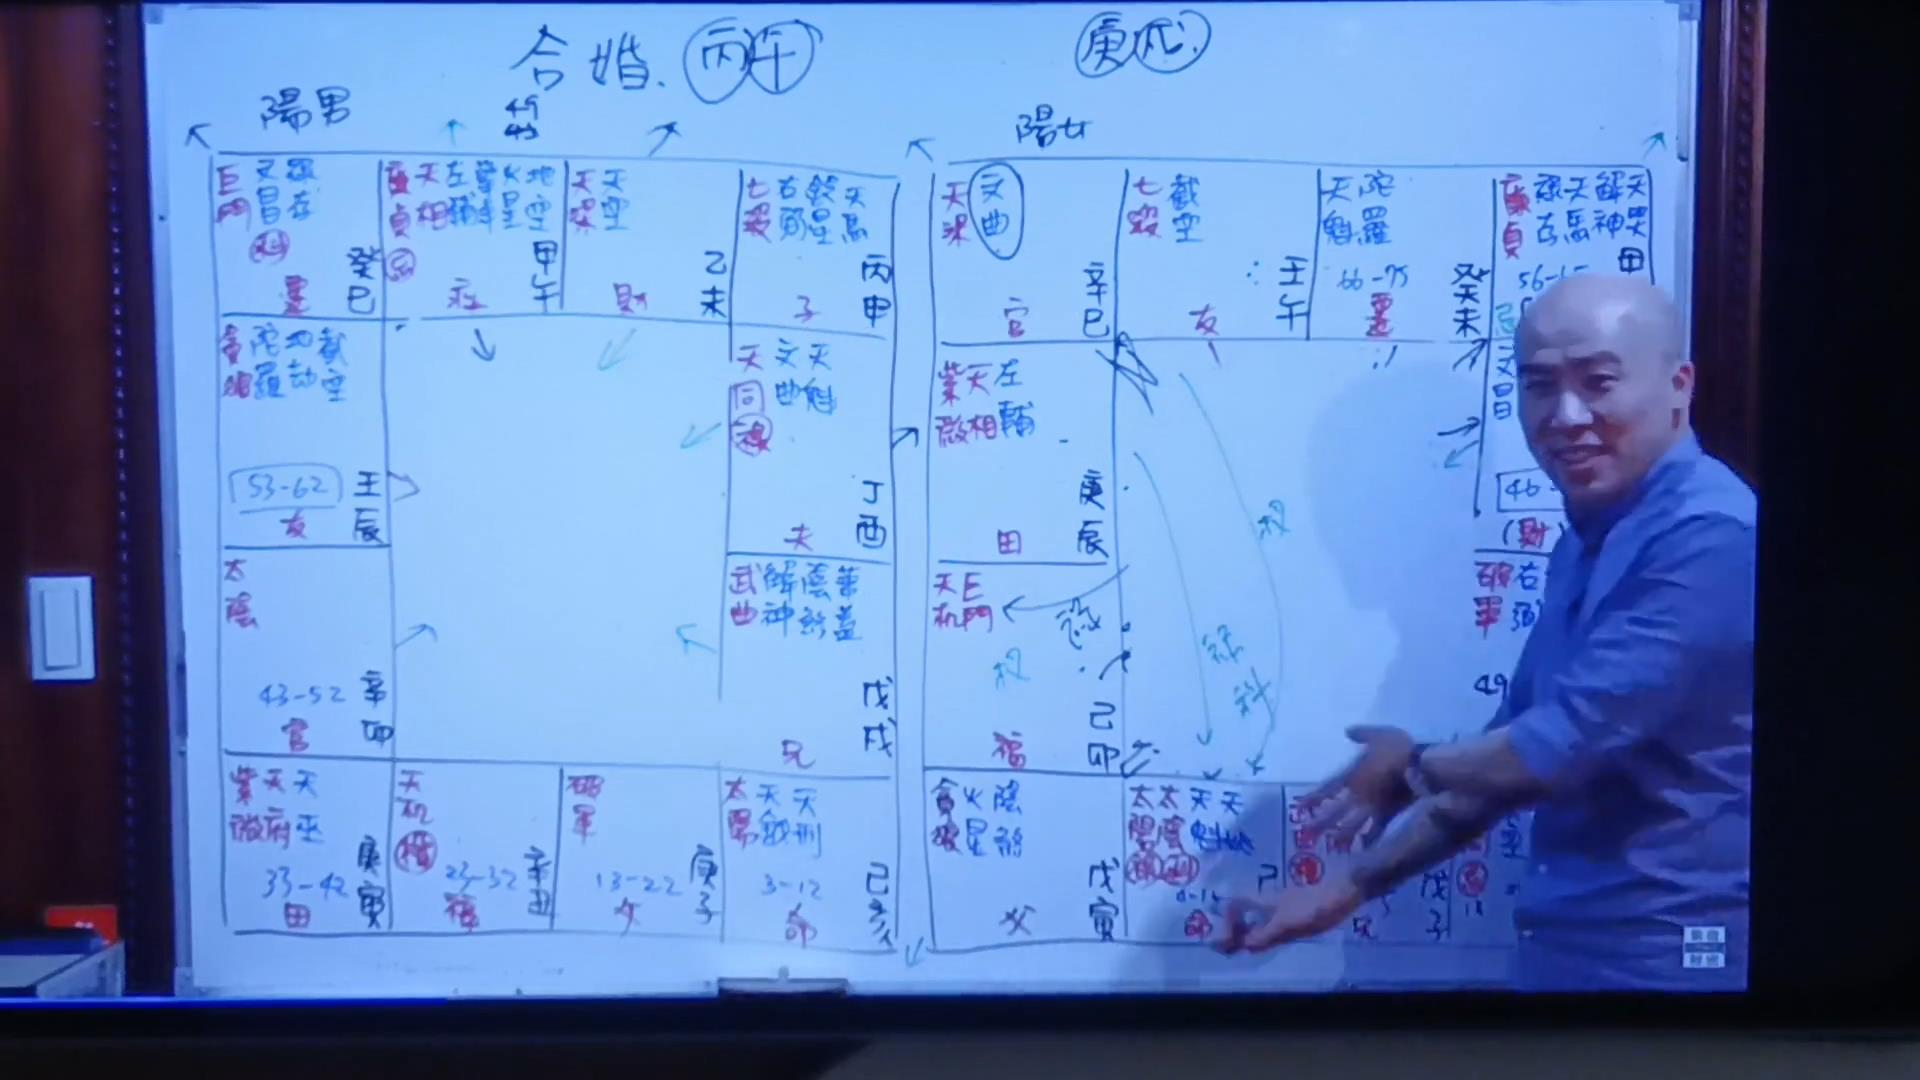 合婚. 丙午
庚戌.
陽男
49
陽女
巨門 文昌 祿存
科
癸巳
廉貞 天相 左輔 火星 地空
忌
甲午
天梁 天空
財
乙未
七殺 右弼 鈴星 天馬
子
丙申
貪狼 陀羅 地劫 截空
53-62
友
壬辰
天同 文曲 天魁
祿
夫
丁酉
太陰
43-52
官
辛卯
武曲 解神 陰煞 華蓋
兄
戊戌
紫微 天府 天巫
33-42
田
庚寅
天机
權
23-32
福
辛丑
破軍
13-22
父
庚子
太陽 天鉞 天刑
3-12
命
己亥
天梁 文曲
官
辛巳
七殺 截空
友
壬午
天魁 陀羅
66-75
遷
癸未
廉貞 祿存 天馬 解神 天哭
甲
56-6
紫微 天相 左輔
田
庚辰
文昌
46-
(財)
天机 巨門
權
福
己卯
破軍 右弼
49
權
祿
科
貪狼 火星 陰煞
父
戊寅
太陽 太陰 天魁
祿 科
命
己
權
兄
戊子
忌